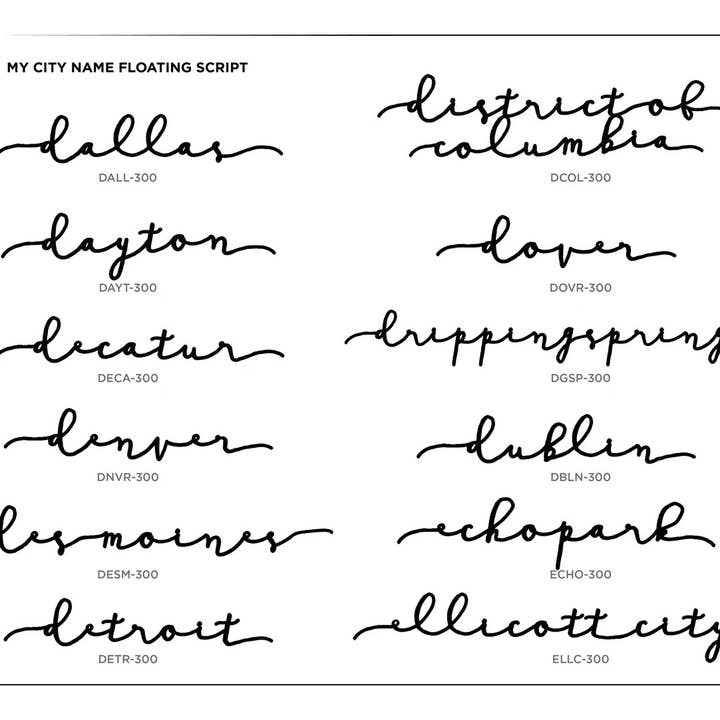 MY CITY NAME FLOATING SCRIPT
dallas
DALL-300
district of
columbia
DCOL-300
dayton
DAYT-300
dover
DOVR-300
decatur
DECA-300
drippingspring
DGSP-300
denver
DNVR-300
dublin
DBLN-300
les moines
DESM-300
echopark
ECHO-300
detroit
DETR-300
ellicott city
ELLC-300